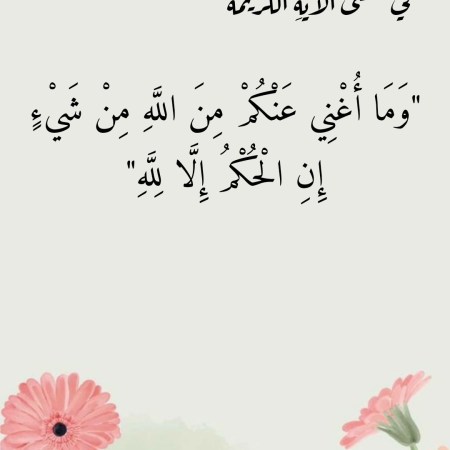 في معنى الآيةِ الكريمة
"وَمَا أُغْنِي عَنْكُمْ مِنَ اللَّهِ مِنْ شَيْءٍ
إِنِ الْحُكْمُ إِلَّا لِلَّهِ"